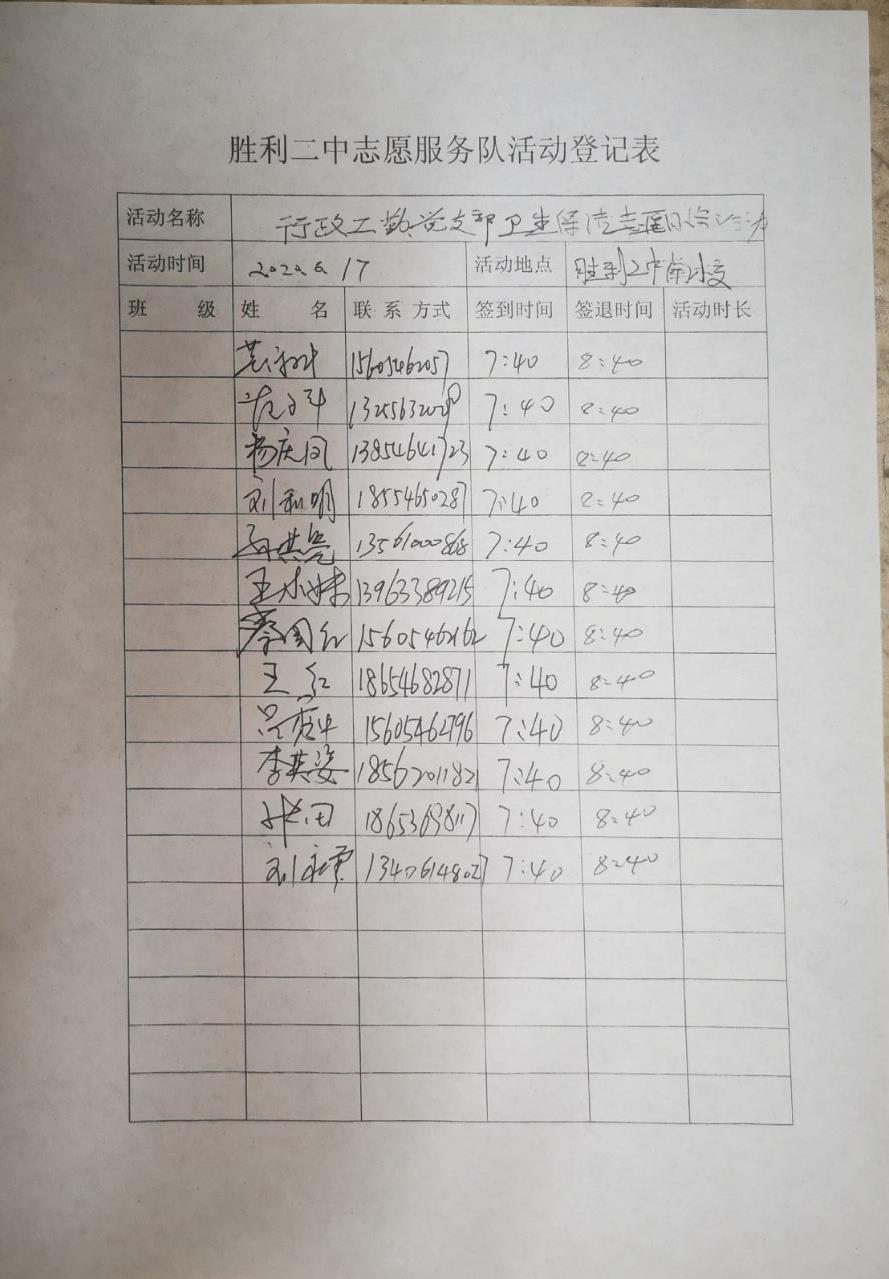 胜利二中志愿服务队活动登记表
活动名称 行政工勤党支部卫生保洁志愿服务活动
活动时间 2020.6.17 活动地点 胜利二中南
班 级 姓 名 联系方式 签到时间 签退时间 活动时长
15605462057 7:40 8:40
7:40 8:40
杨庆凤 13854641723 7:40 8:40
刘和明 18554650287 7:40 8:40
13561000868 7:40 8:40
王小妹 13963389215 7:40 8:40
蔡国红 15605462162 7:40 8:40
王红 18654682871 7:40 8:40
15605462796 7:40 8:40
李英姿 18562011821 7:40 8:40
张田 18653698117 7:40 8:40
13406148027 7:40 8:40